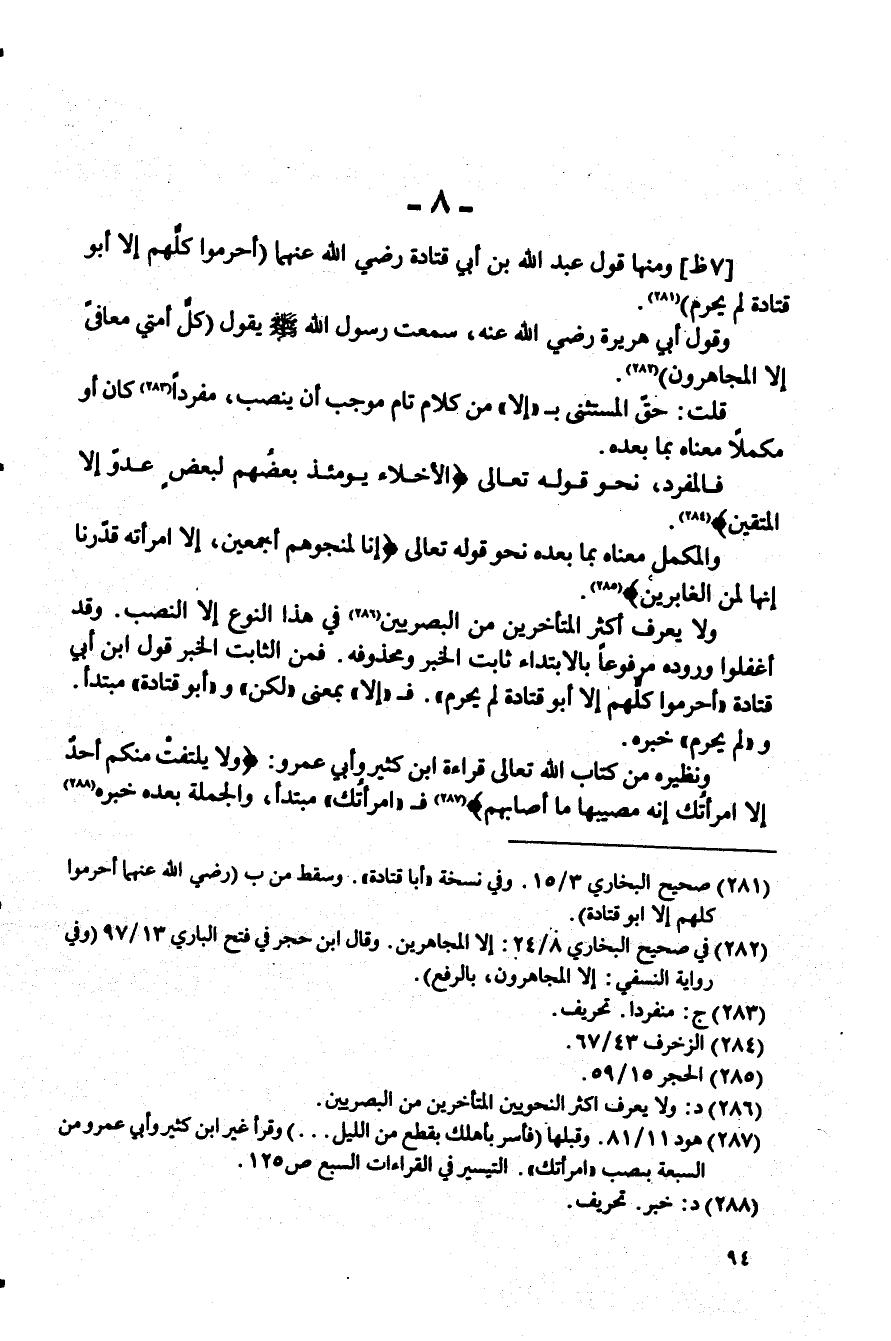 - ٨ -
[٧ظ] ومنها قول عبد الله بن أبي قتادة رضي الله عنهما (أحرموا كلُّهم إلا أبو
قتادة لم يحرم)(٢٨١).
وقول أبي هريرة رضي الله عنه، سمعت رسول الله ﷺ يقول (كلُّ أمتي معافىً
إلا المجاهرون)(٢٨٢).
قلت: حقّ المستثنى بـ «إلا» من كلام تام موجب أن ينصب، مفرداً(٢٨٣) كان أو
مكملًا معناه بما بعده.
فـالمفرد، نحـو قـولـه تعـالى ﴿الأخـلاء يـومئـذ بعضُهم لبعضٍ عـدوّ إلا
المتقين﴾(٢٨٤).
والمكمل معناه بما بعده نحو قوله تعالى ﴿إنا لمنجوهم أجمعين، إلا امرأته قدّرنا
إنها لمن الغابرين﴾(٢٨٥).
ولا يعرف أكثر المتأخرين من البصريين(٢٨٦) في هذا النوع إلا النصب. وقد
أغفلوا وروده مرفوعاً بالابتداء ثابت الخبر ومحذوفه. فمن الثابت الخبر قول ابن أبي
قتادة «أحرموا كلُّهم إلا أبو قتادة لم يحرم». فـ «إلا» بمعنى «لكن» و «أبو قتادة» مبتدأ.
و «لم يحرم» خبره.
ونظيره من كتاب الله تعالى قراءة ابن كثير وأبي عمرو: ﴿ولا يلتفتْ منكم أحدٌ
إلا امرأتُك إنه مصيبها ما أصابهم﴾(٢٨٧) فـ «امرأتُك» مبتدأ، والجملة بعده خبره(٢٨٨)
(٢٨١) صحيح البخاري ١٥/٣. وفي نسخة «أبا قتادة». وسقط من ب (رضي الله عنهما أحرموا
كلهم إلا ابو قتادة).
(٢٨٢) في صحيح البخاري ٢٤/٨: إلا المجاهرين. وقال ابن حجر في فتح الباري ٩٧/١٣ (وفي
رواية النسفي: إلا المجاهرون، بالرفع).
(٢٨٣) ج: منفردا. تحريف.
(٢٨٤) الزخرف ٦٧/٤٣.
(٢٨٥) الحجر ٥٩/١٥.
(٢٨٦) د: ولا يعرف اكثر النحويين المتأخرين من البصريين.
(٢٨٧) هود ٨١/١١. وقبلها (فأسر بأهلك بقطع من الليل ...) وقرأ غير ابن كثير وأبي عمرو من
السبعة بنصب «امرأتك». التيسير في القراءات السبع ص١٢٥.
(٢٨٨) د: خبر. تحريف.
٩٤